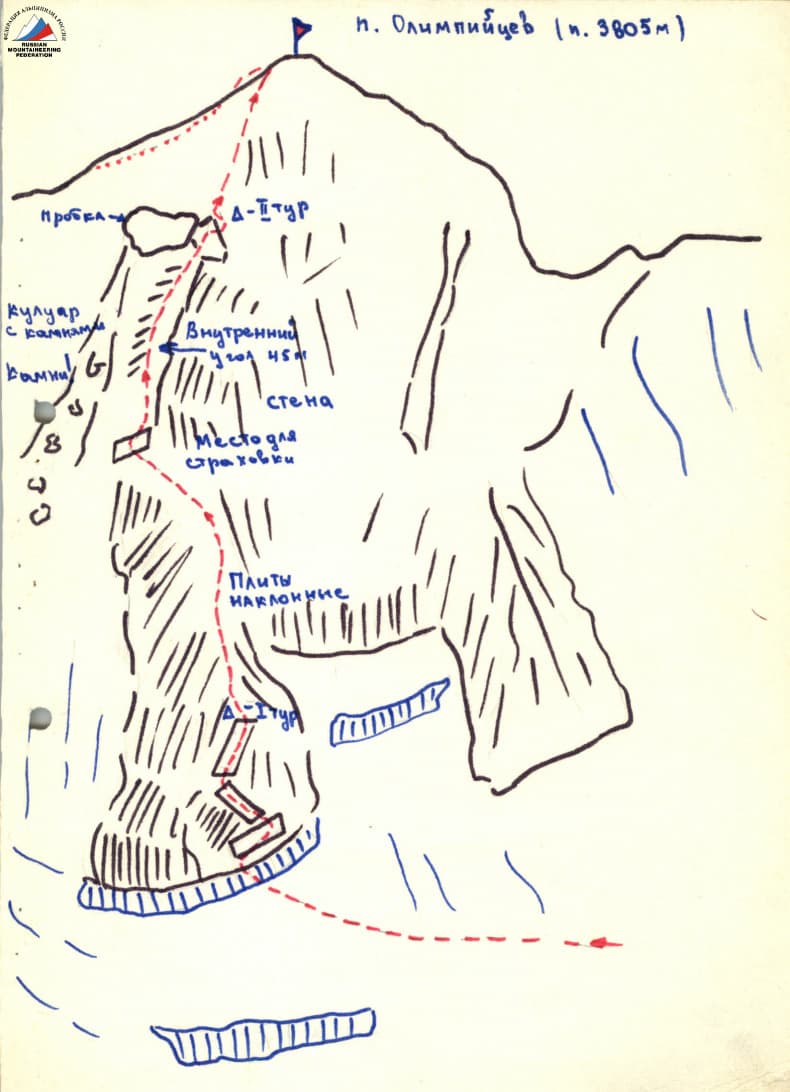 ФЕДЕРАЦИЯ АЛЬПИНИЗМА РОССИИ
RUSSIAN
MOUNTAINEERING
FEDERATION
п. Олимпийцев (п. 3805 м)
Пробка
Δ-II тур
Кулуар
с камнями
Камни!
Внутренний
угол 45м
стена
Место для
страховки
Плиты
наклонные
Δ-I тур